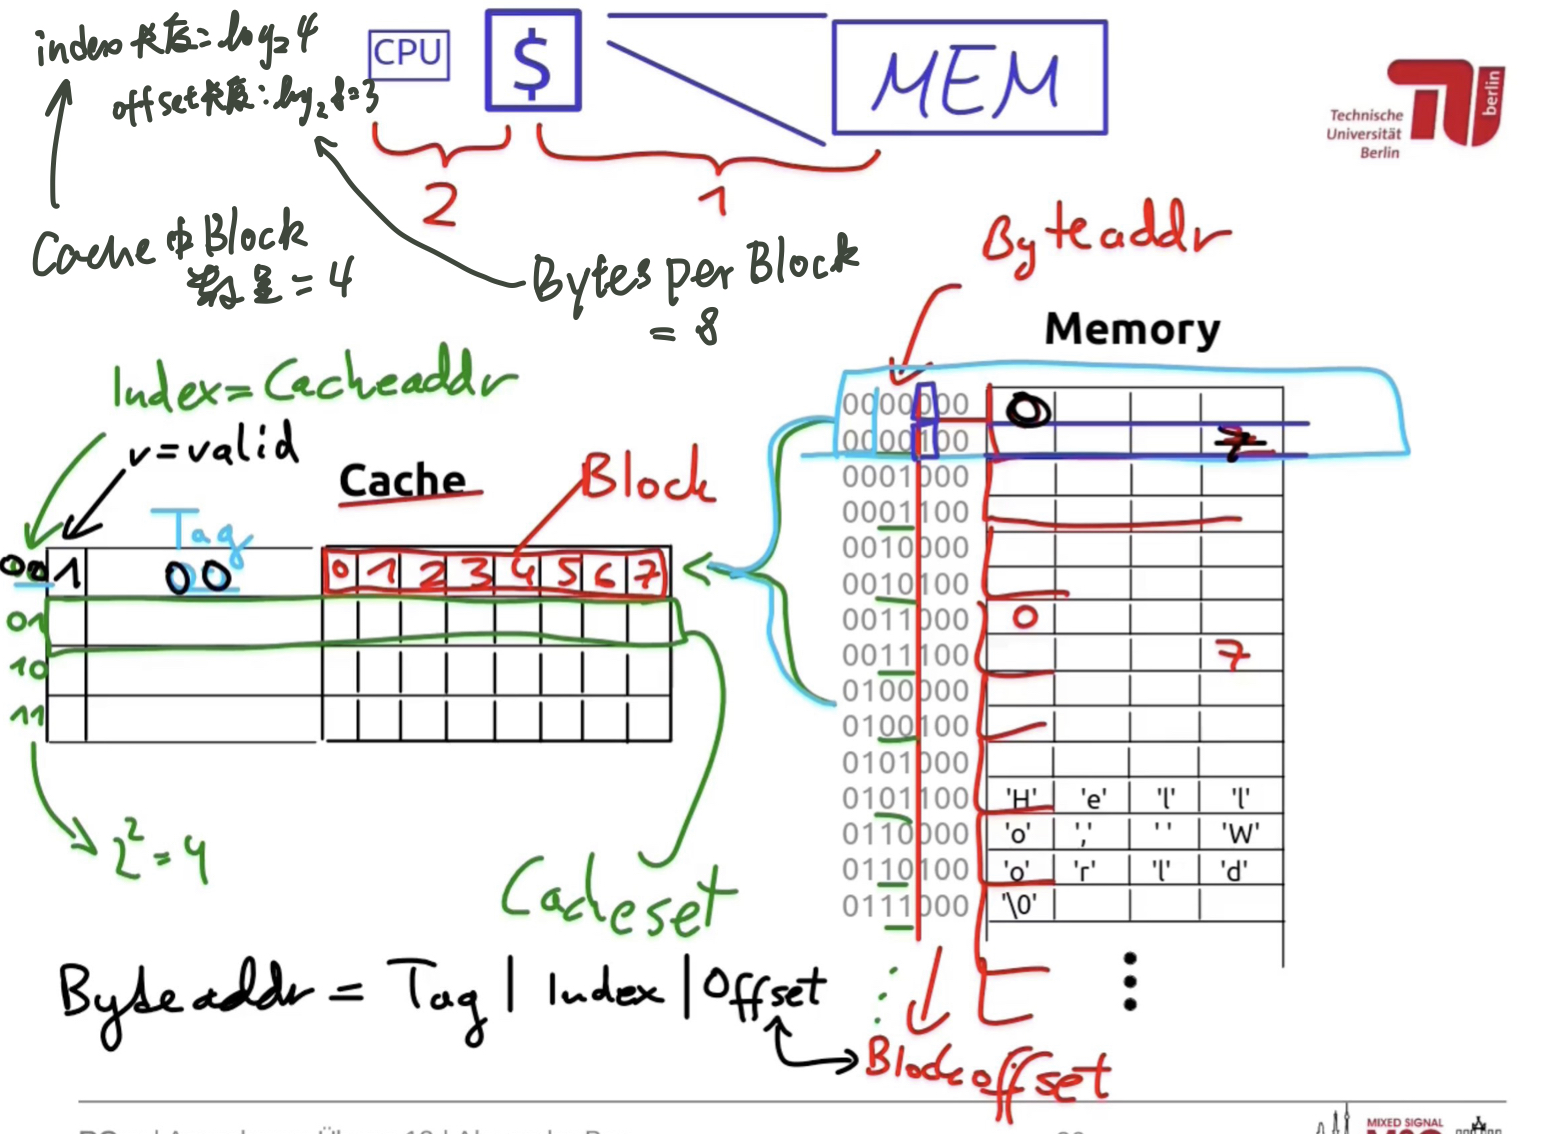 index长度=log₂4
offset长度:log₂8=3
CPU
$
MEM
Technische
Universität
Berlin
berlin
2
1
Cache中Block
数量=4
Bytes per Block
=8
Byteaddr
Memory
Index=Cacheaddr
v=valid
Cache
Block
Tag
00 1 00 0 1 2 3 4 5 6 7
01
10
11
2²=4
Cacheset
0000000 0
0000100 7
0001000
0001100
0010000
0010100
0011000 0
0011100 7
0100000
0100100
0101000
0101100 'H' 'e' 'l' 'l'
0110000 'o' ',' ' ' 'W'
0110100 'o' 'r' 'l' 'd'
0111000 '\0'
Byteaddr = Tag | Index | Offset
Blockoffset
MIXED SIGNAL